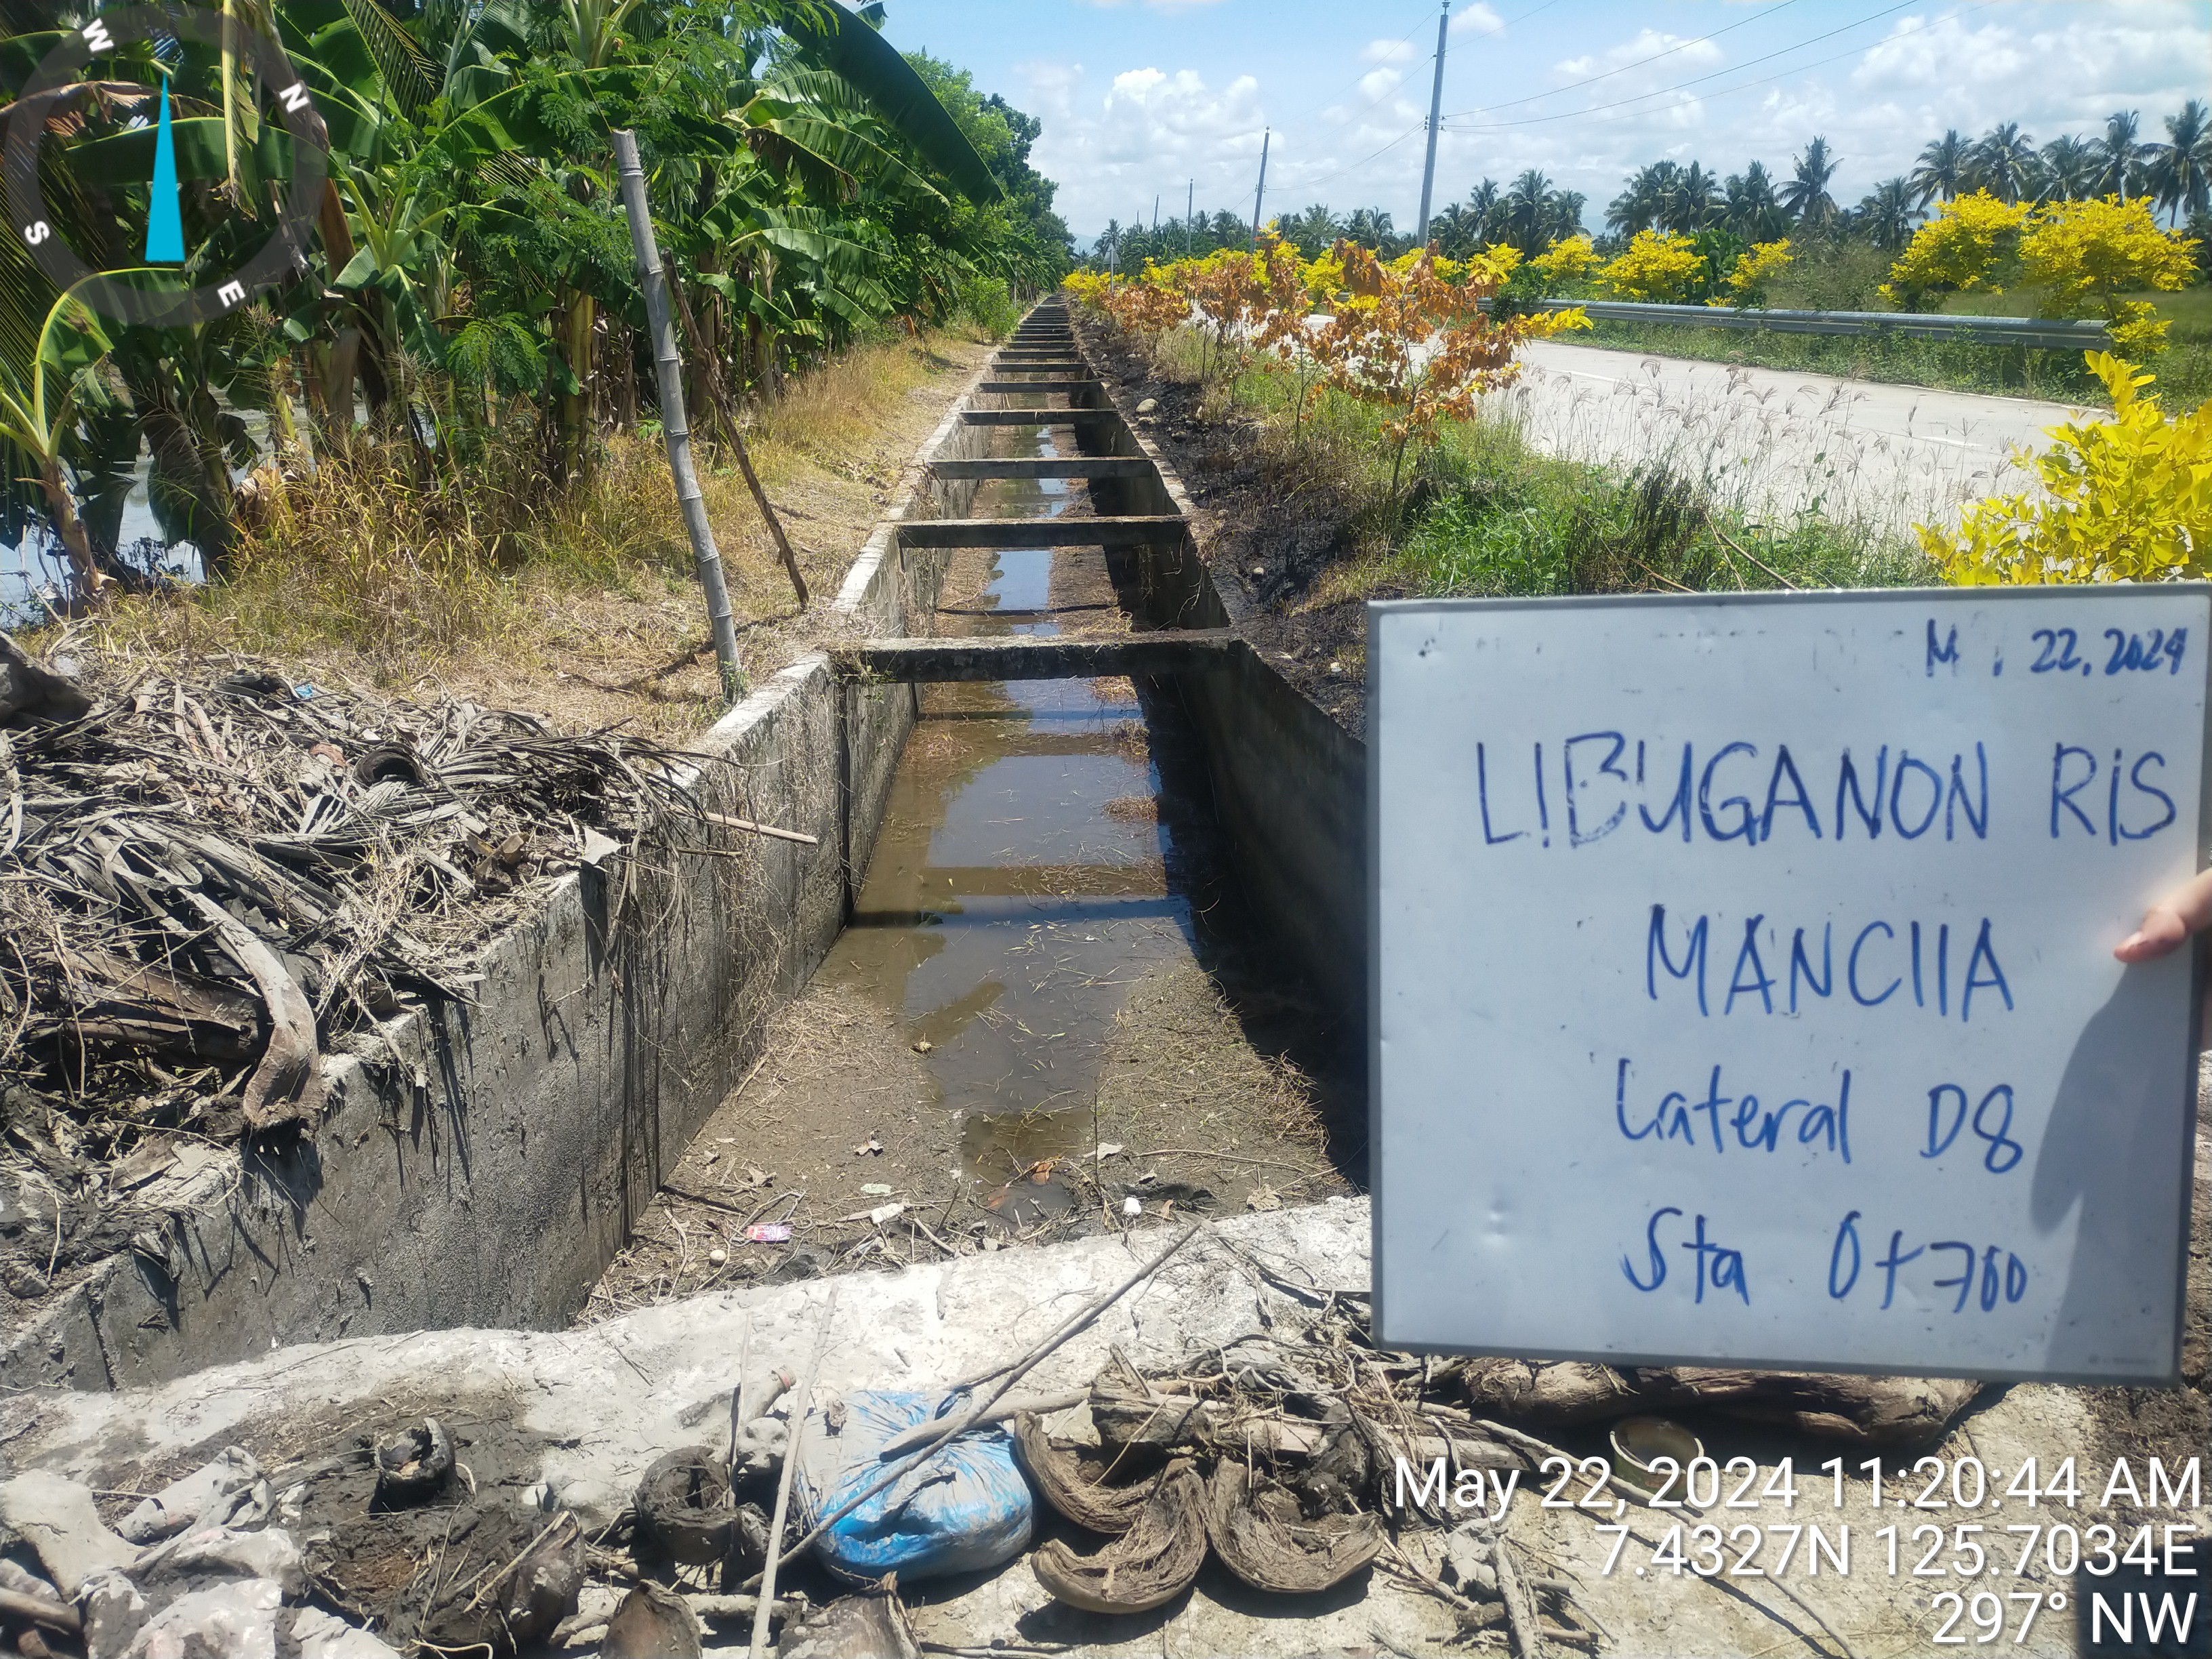 W
N
S
E
M . 22, 2024
LIBUGANON RIS
MANCIIA
Lateral D8
Sta 0+700
May 22, 2024 11:20:44 AM
7.4327N 125.7034E
297° NW